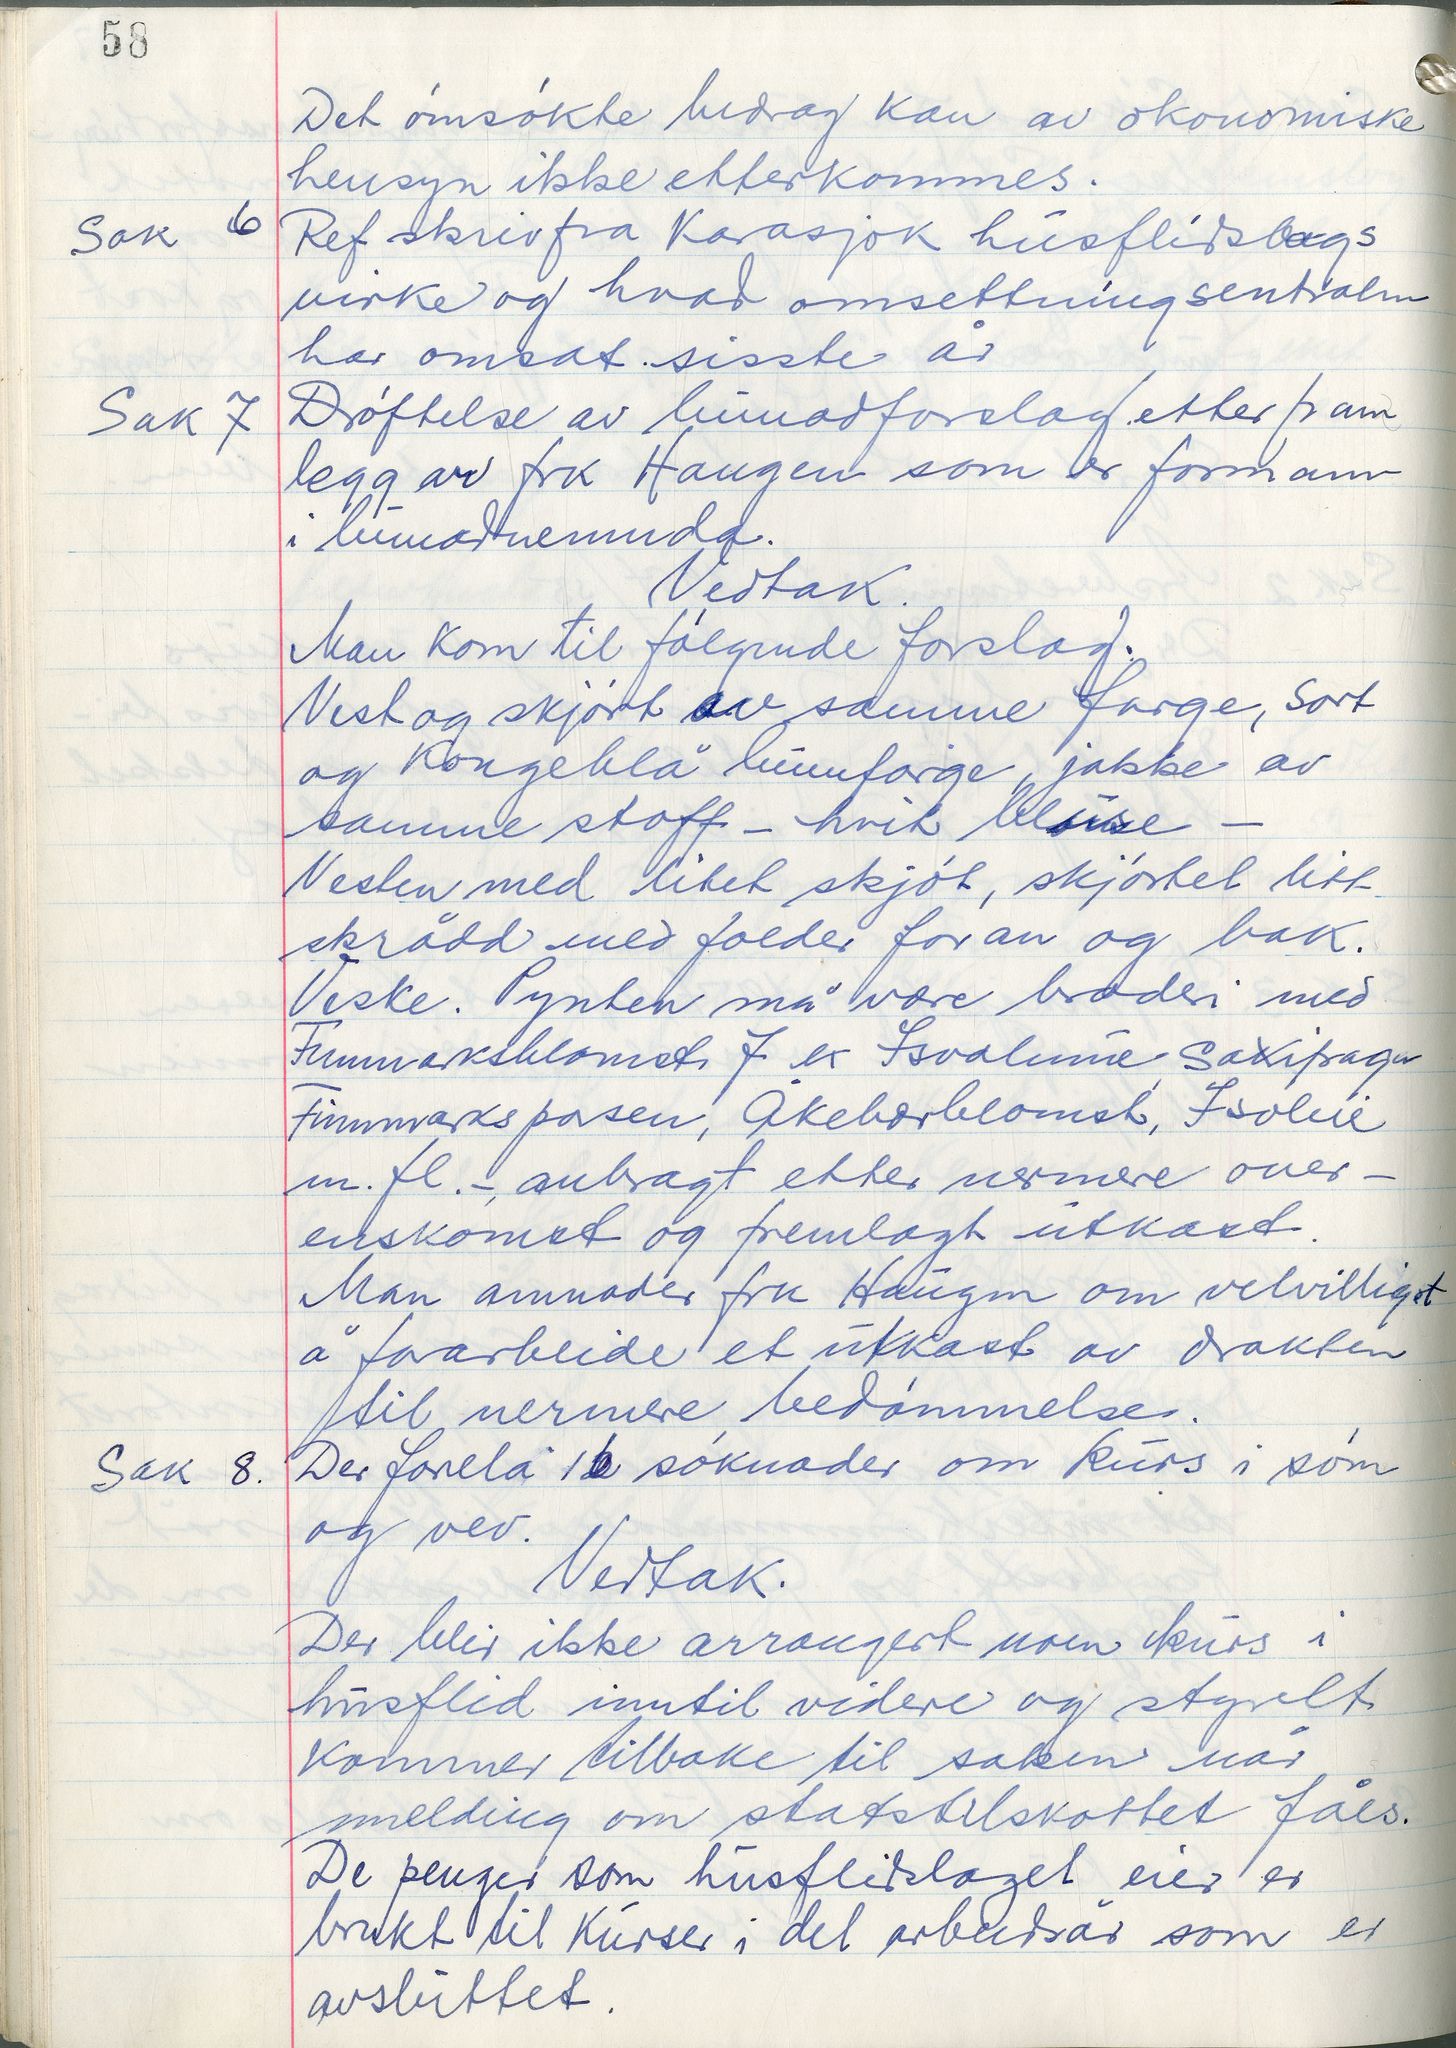 58
Det omsøkte bidrag kan av økonomiske
hensyn ikke etterkommes.
Sak 6 Ref skriv fra Karasjok husflidslags
virke og hvad omsettningsentralen
har omsat sisste år
Sak 7 Drøftelse av bunadforslag etter fram
legg av frk Haugen som er formann
i bunadnemnda.
Vedtak.
Man kom til følgende forslag.
Vest og skjørt av samme farge, sort
og Kongeblå bunnfarge, jakke av
samme stoff - hvit bluse -
Vesten med litet skjøt, skjørtet litt
skrådd med folder foran og bak.
Veske. Pynten må være broderi med
Finnmarksblomst f ex Isvalmue, Saxifraga
Finmarksposen, Åkebærblomst, Isoleie
m. fl. -, anbragt etter nermere over-
enskomst og fremlagt utkast.
Man anmoder frk Haugen om velvilligst
å forarbeide et utkast av drakten
til nermere bedømmelse.
Sak 8. Der forelå 16 søknader om kurs i søm
og vev.
Vedtak.
Der blir ikke arrangert noen kurs i
husflid inntil videre og styret
kommer tilbake til saken når
melding om statstilskottet fåes.
De penger som husflidslaget eier er
brukt til kurser i det arbeidsår som er
avsluttet.